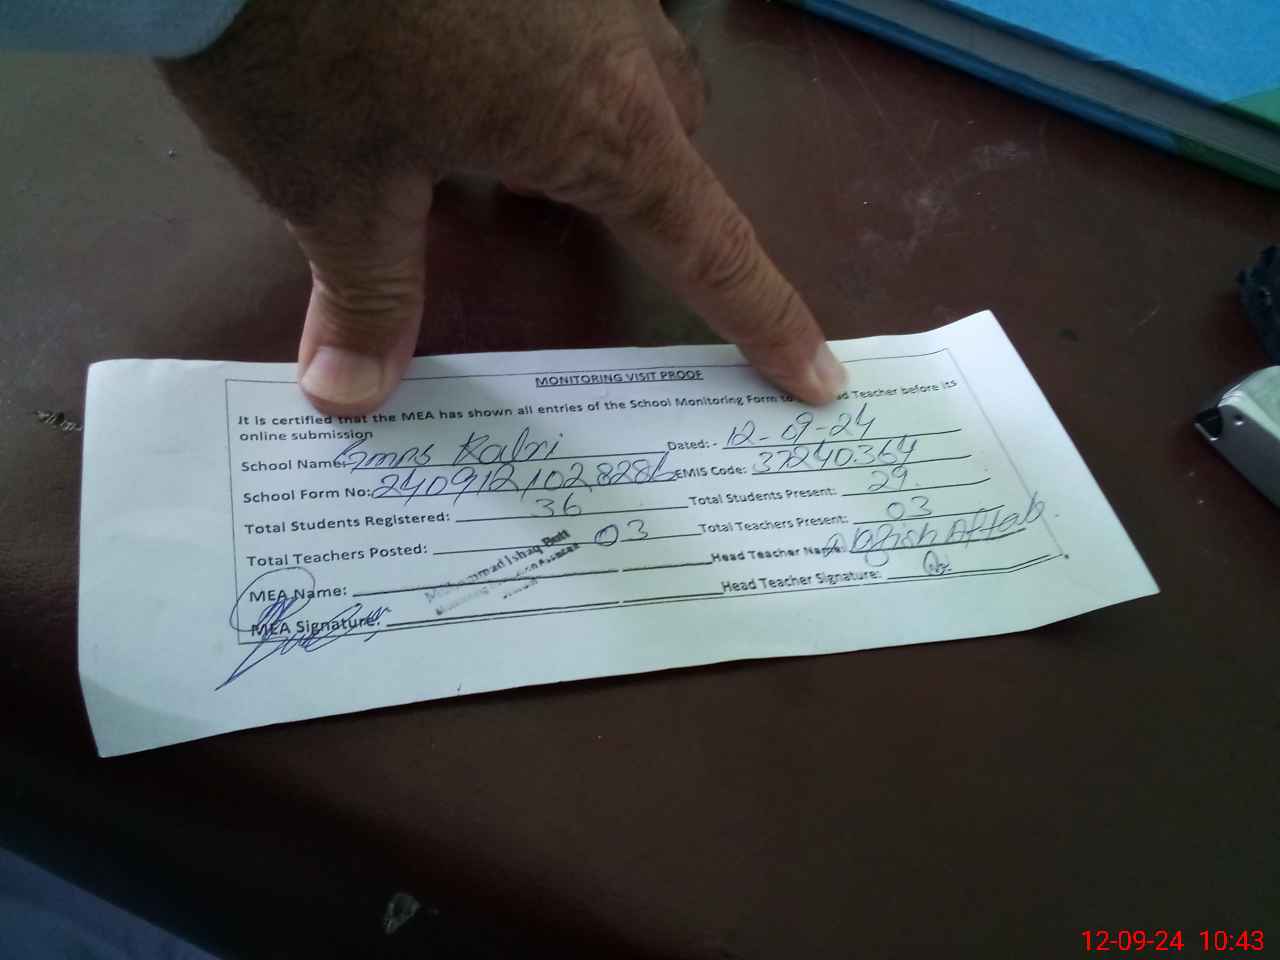 MONITORING VISIT PROOF
It is certified that the MEA has shown all entries of the School Monitoring Form to ad Teacher before its
online submission
School Name: Gmps Kalri Dated:- 12-09-24
School Form No: EMIS Code: 37240364
Total Students Registered: 36 Total Students Present: 29
Total Teachers Posted: 03 Total Teachers Present: 03
MEA Name: Muhammad Ishaq Butt Head Teacher Name: Aftab
MEA Signature: Head Teacher Signature:
12-09-24 10:43